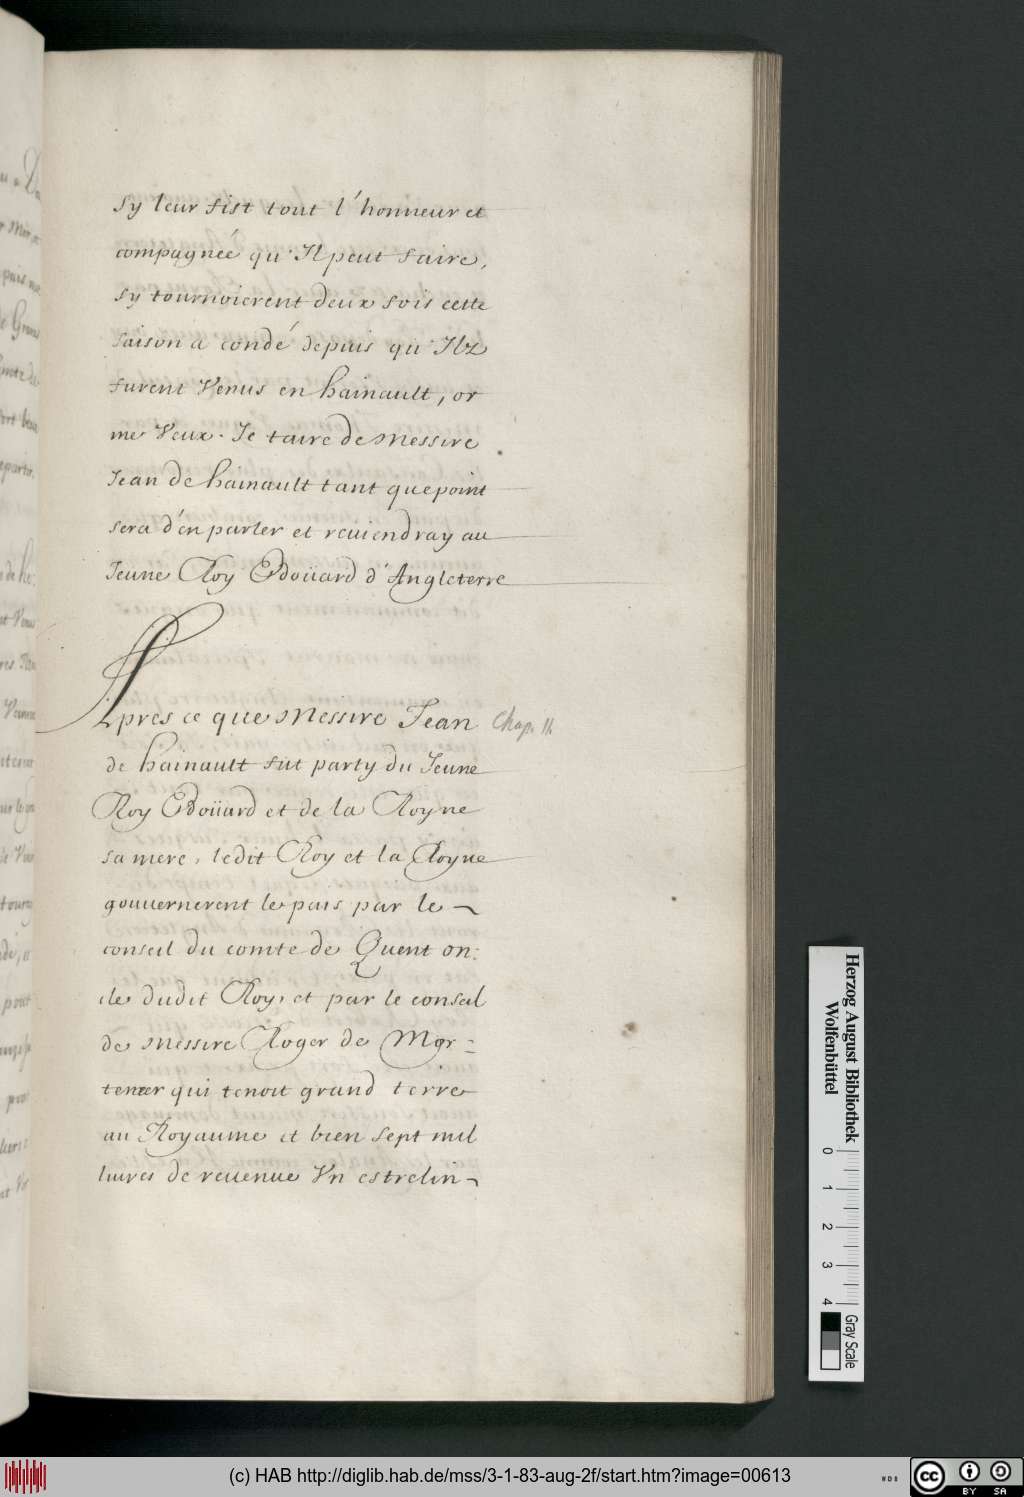 sy leur fist tout l'honneur et
compagnée qu'Il peut faire,
sy tournoierent deux fois cette
saison a condé depuis qu'Ilz
furent Venus en hainault, or
me Veux Je taire de Messire
Jean de hainault tant que point
sera d'en parler et reuiendray au
Jeune Roy Edoüard d'Angleterre
Apres ce que Messire Jean
Chap. 11.
de hainault fut party du Jeune
Roy Edoüard et de la Royne
sa mere, ledit Roy et la Royne
gouuernerent le pais par le
conseil du comte de Quent on:
cle dudit Roy, et par le conseil
de Messire Roger de Mor=
temer qui tenoit grand terre
au Royaume et bien sept mil
liures de reuenue Vn estrelin
Herzog August Bibliothek
Wolfenbüttel
0 1 2 3 4
Gray Scale
(c) HAB http://diglib.hab.de/mss/3-1-83-aug-2f/start.htm?image=00613
WDB
cc BY SA